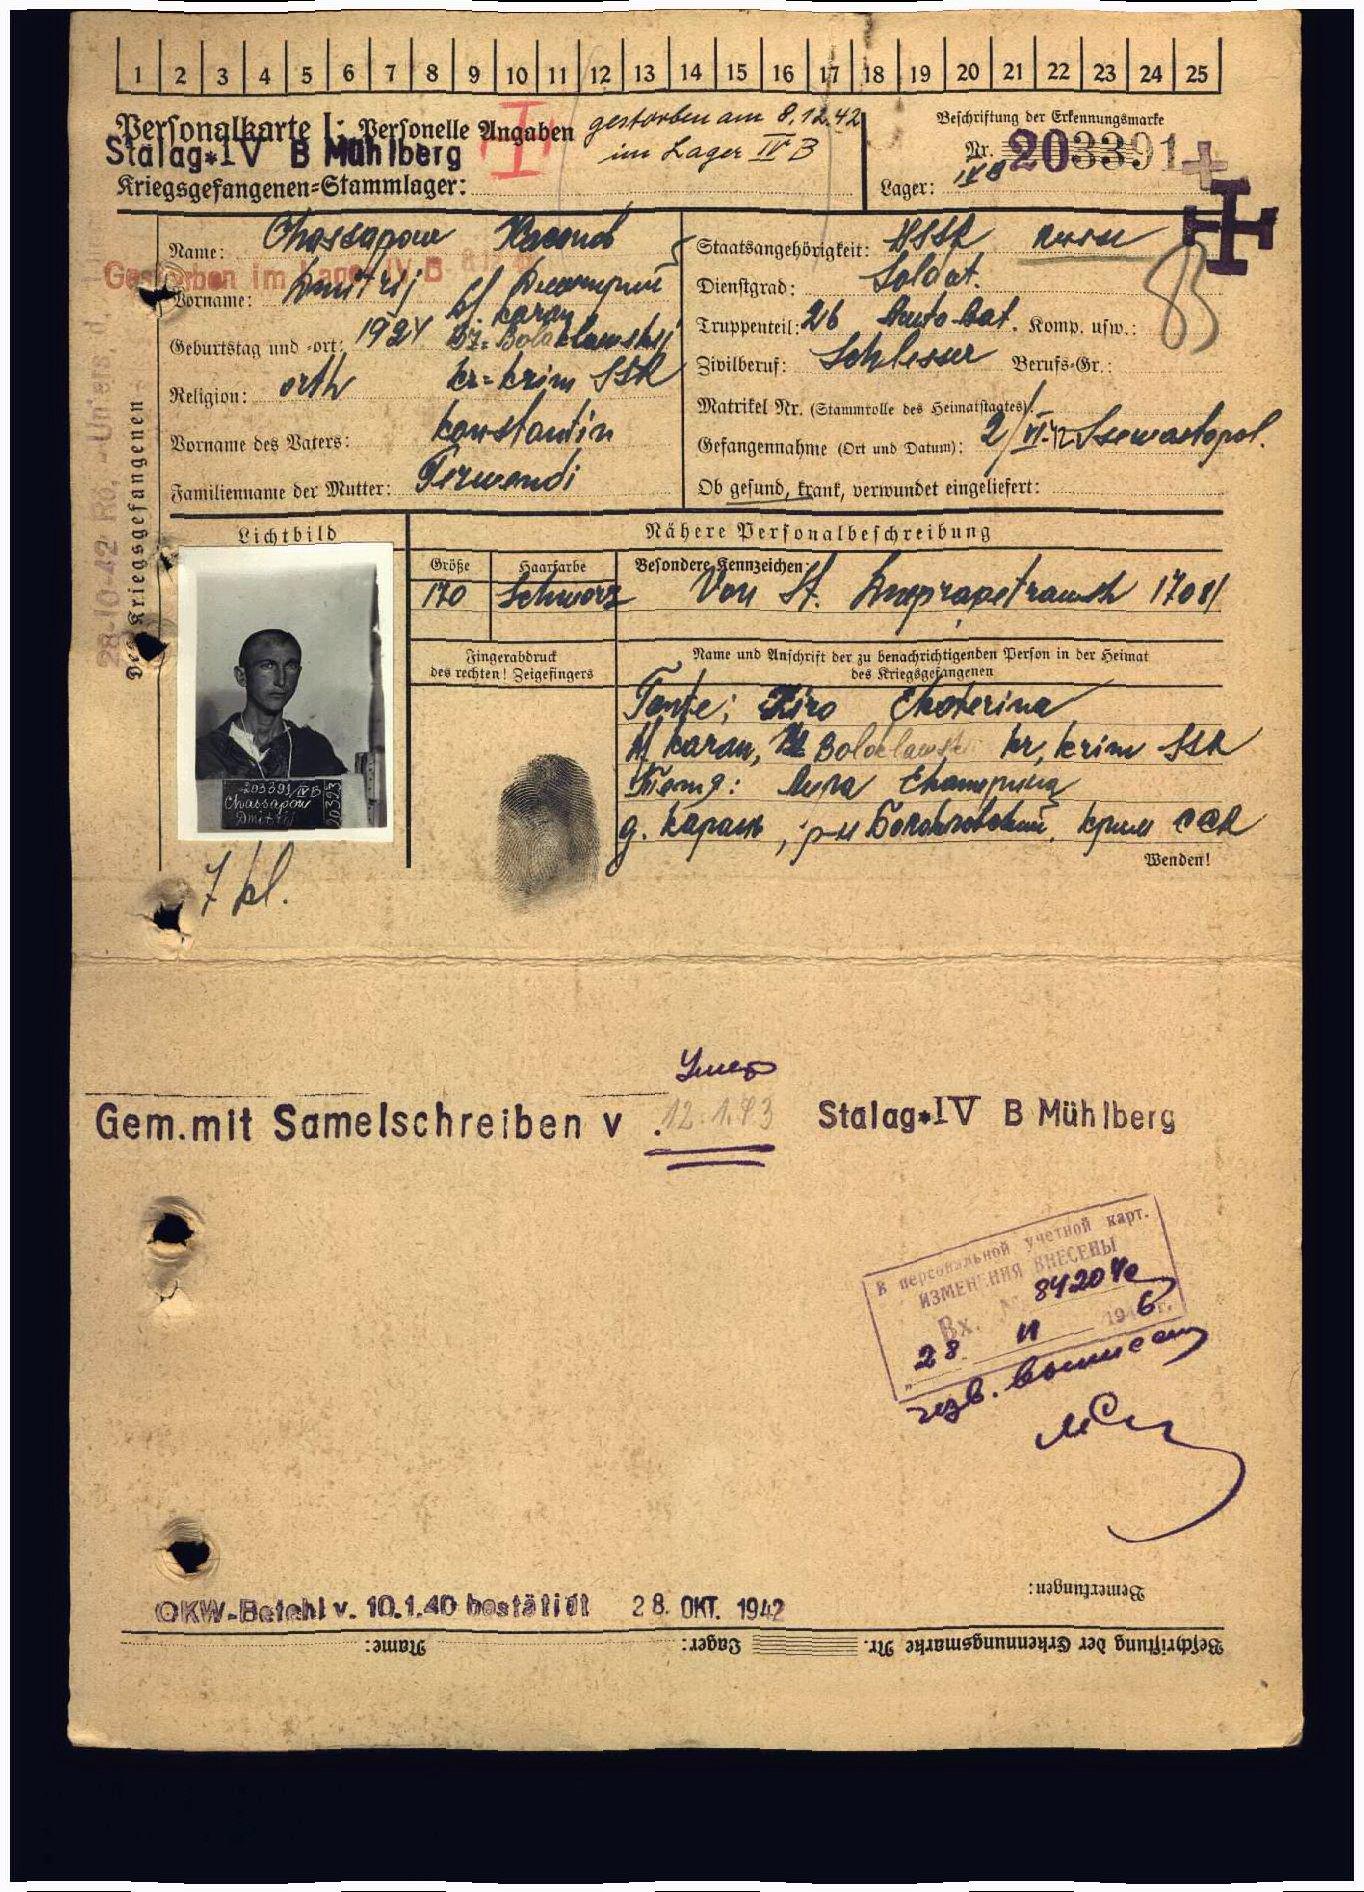 1 2 3 4 5 6 7 8 9 10 11 12 13 14 15 16 17 18 19 20 21 22 23 24 25
Personalkarte I: Personelle Angaben
gestorben am 8.12.42
im Lager IV B
Stalag*IV B Mühlberg
Kriegsgefangenen=Stammlager:
Beschriftung der Erkennungsmarke
Nr. 203391
Lager: IVB
Name: Chassapow
Gestorben im Lager IV B 8.12.42
Vorname: Dmitrij Дмитрий
Geburtstag und -ort: 1924 Karan
Religion: orth kr= krim SSR
Vorname des Vaters: Konstantin
Familienname der Mutter: Terwendi
Staatsangehörigkeit: russe
Dienstgrad: Soldat.
Truppenteil: 26 Auto-bat. Komp. usw.:
Zivilberuf: Schlosser Berufs-Gr.:
Matrikel Nr. (Stammrolle des Heimatstaates):
Gefangennahme (Ort und Datum): 2/VI-42 Ssewastopol.
Ob gesund, krank, verwundet eingeliefert:
83
Der Kriegsgefangenen
28-10-42
Lichtbild
Nähere Personalbeschreibung
Größe Haarfarbe Besondere Kennzeichen:
170 Schwarz Von St.
Fingerabdruck
des rechten! Zeigefingers
Name und Anschrift der zu benachrichtigenden Person in der Heimat
des Kriegsgefangenen
Tante: Ekaterina
Karan, kr, krim SSR
Екатерина
д. Карань, р-н Балаклавский, Крим ССР
Wenden!
203391/IVB
Chassapow
Dmitrij
7 kl.
Умер
Gem.mit Samelschreiben v. 12.1.43 Stalag*IV B Mühlberg
В персональной учетной карт.
ИЗМЕНЕНИЯ ВНЕСЕНЫ
Вх. №
28 11 1946 г.
OKW-Befehl v. 10.1.40 bestätigt 28. OKT. 1942
Bemerkungen:
Beschriftung der Erkennungsmarke Nr. Lager: Name: